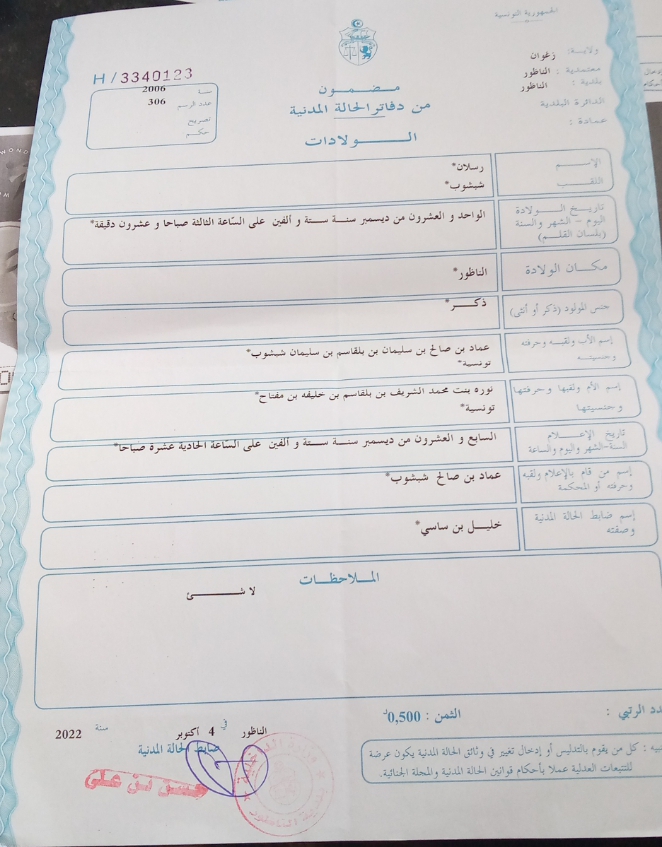 الجمهورية التونسية
ولاية: زغوان
معتمدية: الناظور
بلدية: الناظور
الدائرة البلدية
عمادة:
H/3340123
سنة 2006
عدد الرسم 306
تصريح
حكم
مضمون
من دفاتر الحالة المدنية
الولادات
الإسم رسلان*
اللقب شبشوب*
تاريخ الولادة
اليوم - الشهر والسنة
(بلسان القلم)
الواحد و العشرون من ديسمبر سنة ستة و ألفين على السّاعة الثالثة صباحا و عشرون دقيقة*
مكان الولادة الناظور*
جنس المولود (ذكر أو أنثى) ذكر*
إسم الأب ولقبه وحرفته
وجنسيته
عماد بن صالح بن سليمان بن بلقاسم بن سليمان شبشوب*
تونسية*
إسم الأم ولقبها وحرفتها
وجنسيتها
نوره بنت محمد الشريف بن بلقاسم بن خليفه بن مفتاح*
تونسية*
تاريخ الإعلام
السنة-الشهر واليوم والساعة
السابع و العشرون من ديسمبر سنة ستة و ألفين على السّاعة الحادية عشرة صباحا*
إسم من قام بالإعلام ولقبه
وحرفته أو المحكمة
عماد بن صالح شبشوب*
إسم ضابط الحالة المدنية
وصفته
خليل بن ساسي*
الملاحظات
لا شئ
دد الرتبي :
الثمن : 0,500د
الناظور في 4 أكتوبر سنة 2022
ضابط الحالة المدنية
حسن بن علي
بيه : كل من يقوم بالتدليس أو إدخال تغيير في وثائق الحالة المدنية يكون عرضة
للتتبعات العدلية عملا بأحكام قوانين الحالة المدنية والمجلة الجنائية.